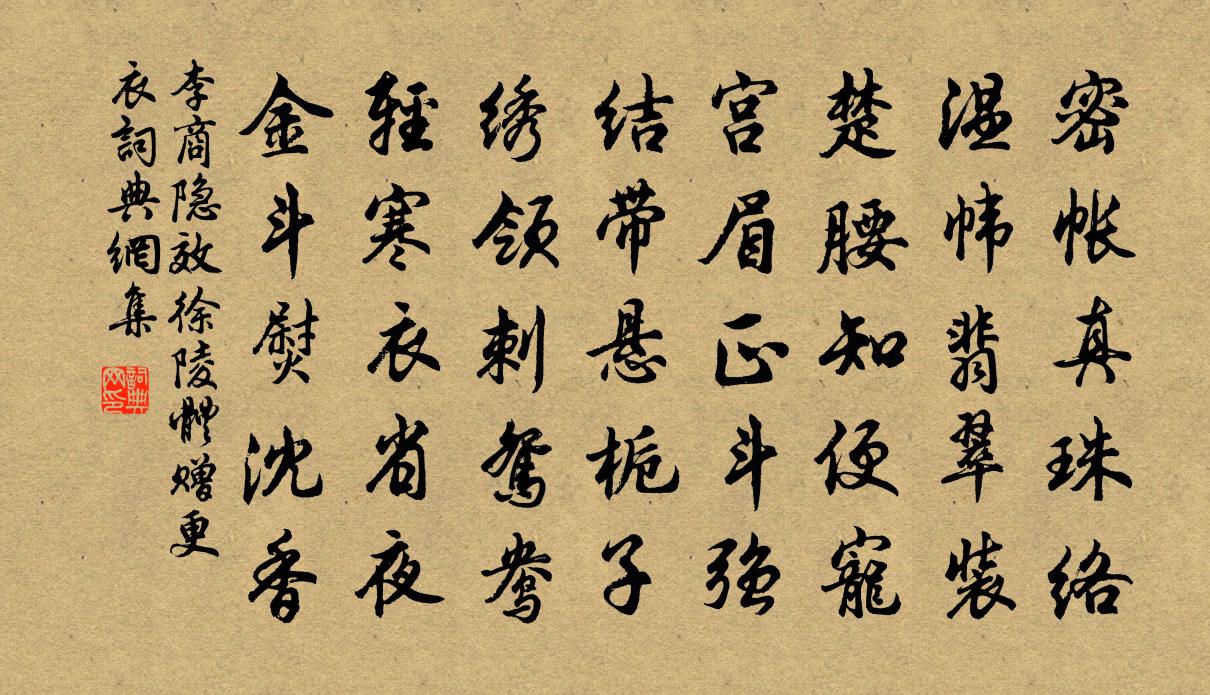 密帐真珠络
温帏翡翠装
楚腰知便寵
宫眉正斗強
结带悬栀子
绣领刺鸳鸯
輕寒衣省夜
金斗熨沈香
李商隐效徐陵體赠更
衣詞典網集
詞典网印